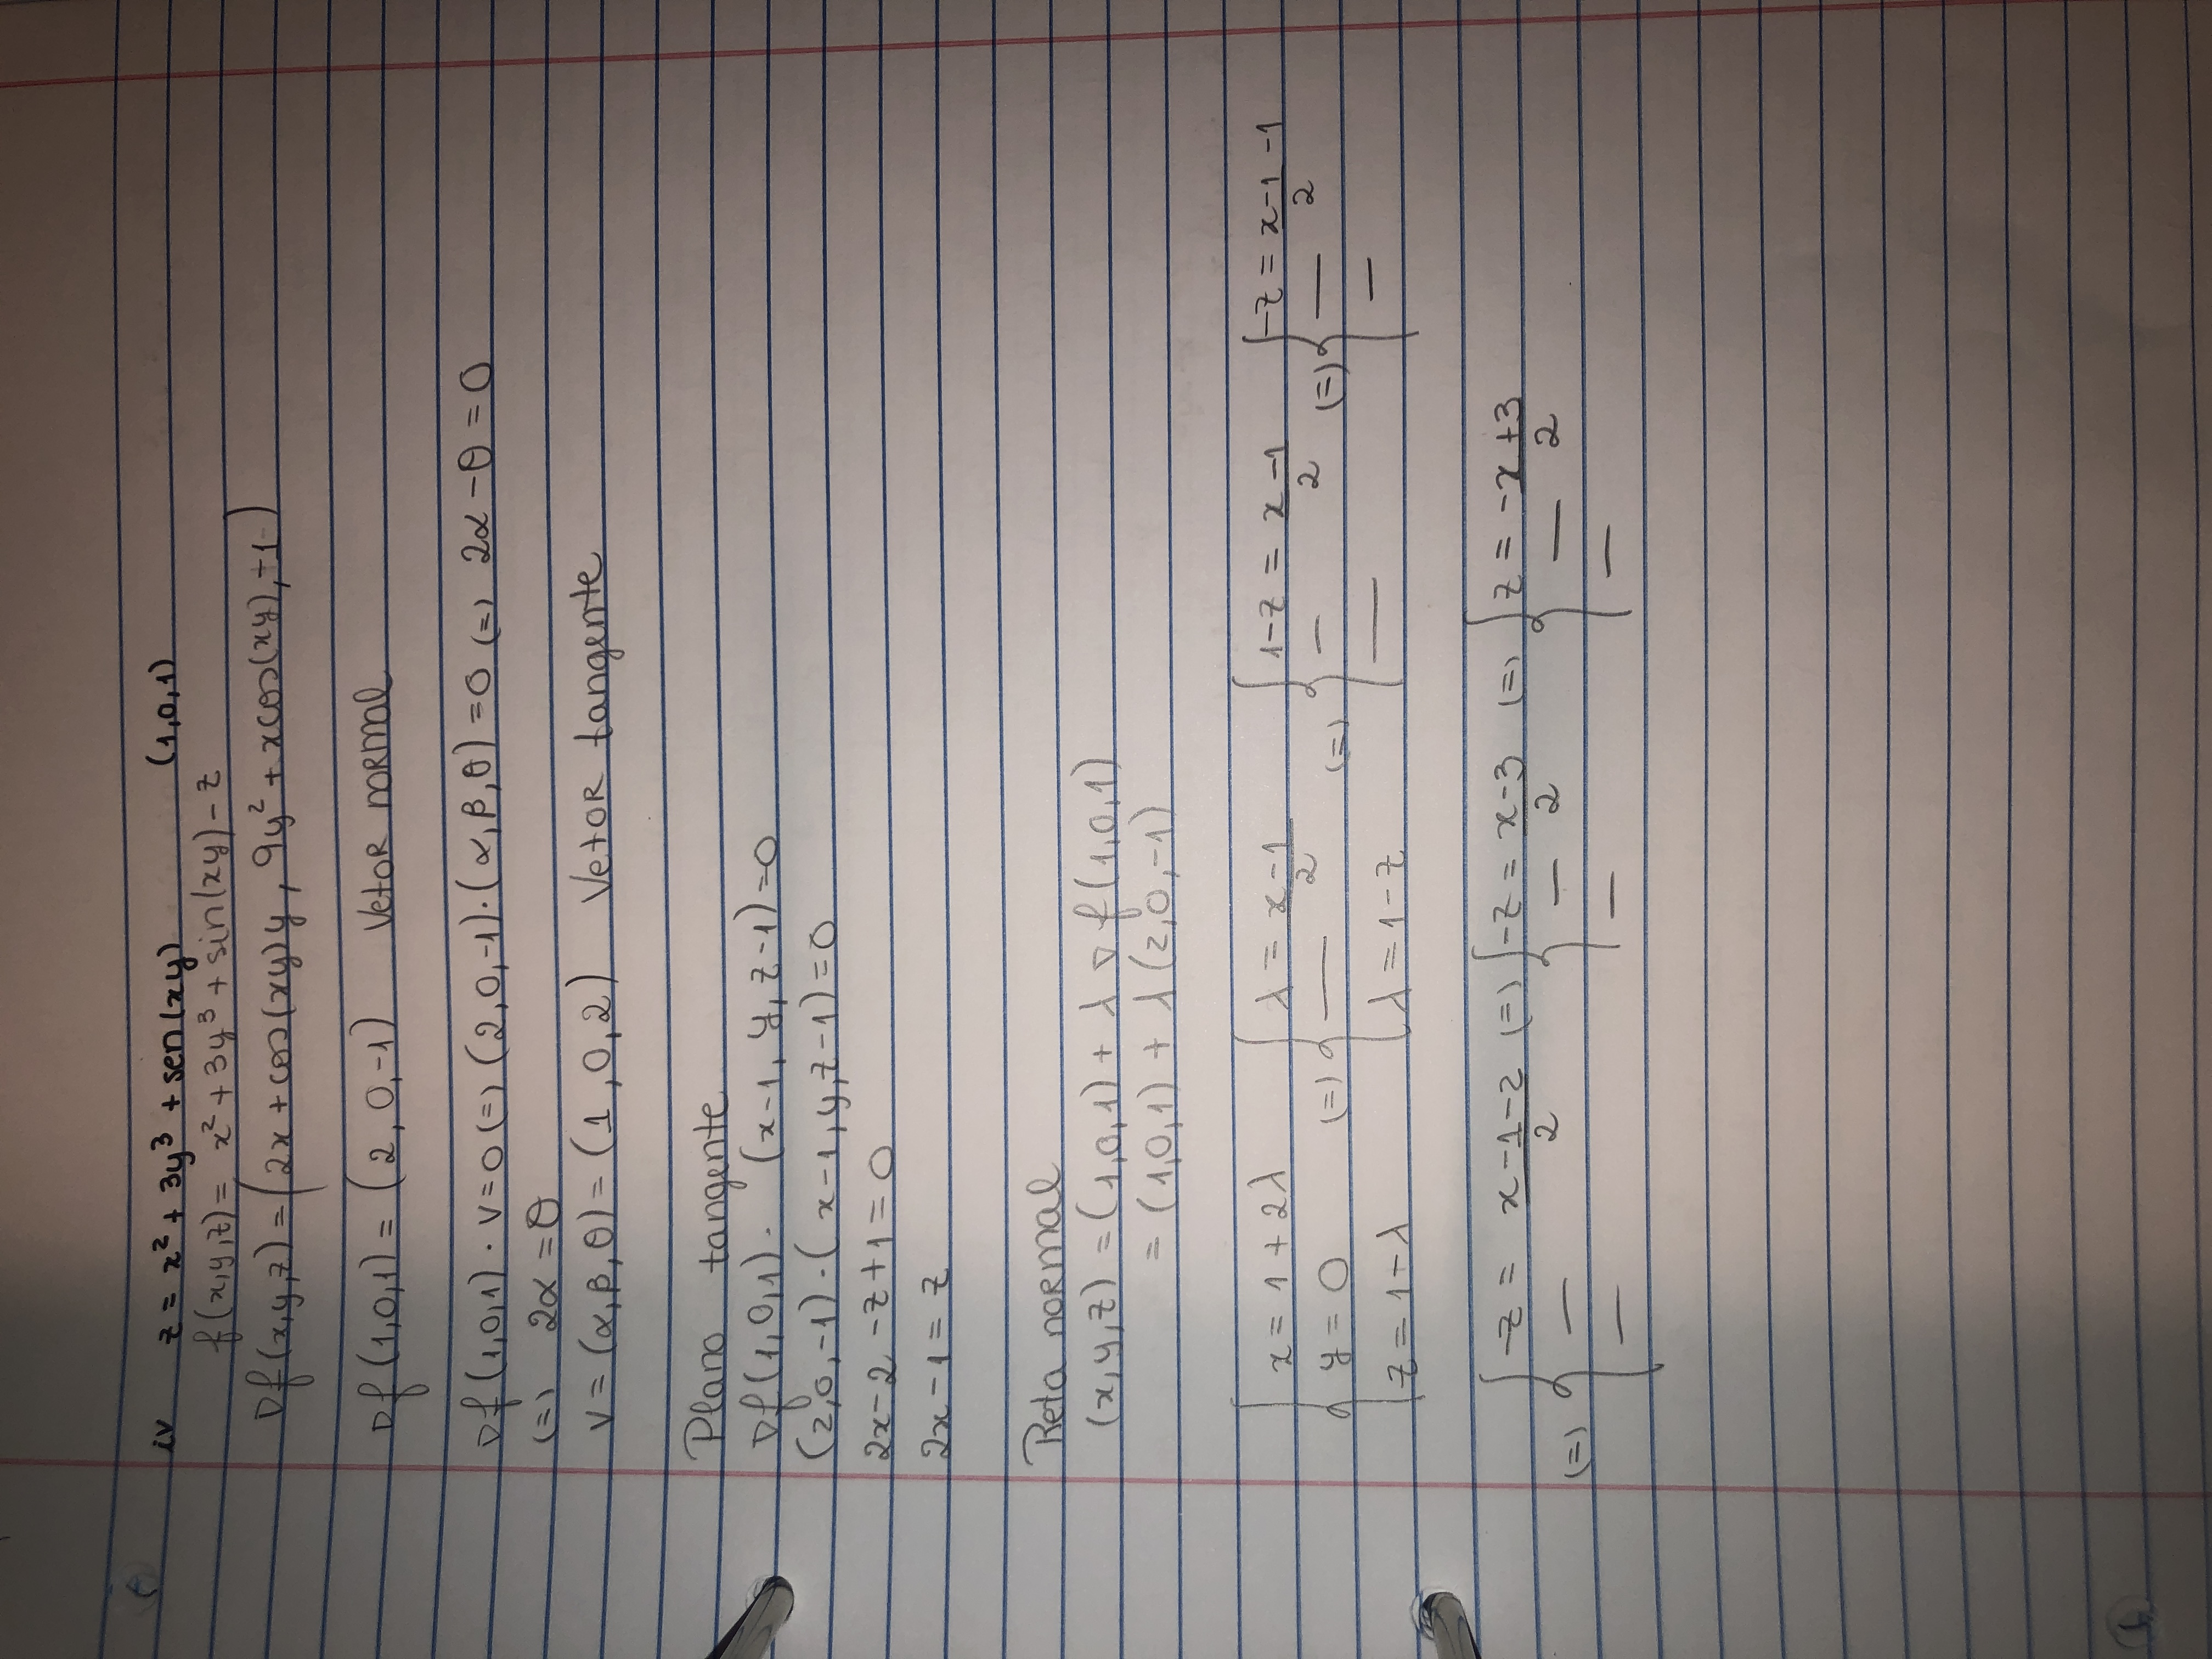 iv z = x² + 3y³ + sen(xy) (1,0,1)
f(x,y,z) = x² + 3y³ + sin(xy) - z
∇f(x,y,z) = (2x + cos(xy)y, 9y² + xcos(xy), -1)
∇f(1,0,1) = (2, 0, -1) Vetor normal
∇f(1,0,1) · v = 0 (=) (2,0,-1)·(α,β,θ) = 0 (=) 2α - θ = 0
(=) 2α = θ
v = (α,β,θ) = (1,0,2) Vetor tangente
Plano tangente
∇f(1,0,1) · (x-1, y, z-1) = 0
(2,0,-1)·(x-1,y,z-1) = 0
2x - 2 - z + 1 = 0
2x - 1 = z
Reta normal
(x,y,z) = (1,0,1) + λ ∇f(1,0,1)
= (1,0,1) + λ(2,0,-1)
{ x = 1 + 2λ { λ = (x-1)/2 { 1-z = (x-1)/2 { -z = (x-1)/2 - 1
y = 0 (=) — (=) — (=) —
z = 1-λ λ = 1-z — —
{ -z = (x-1-2)/2 (=) { -z = (x-3)/2 (=) { z = (-x+3)/2
(=) — — —
— — —